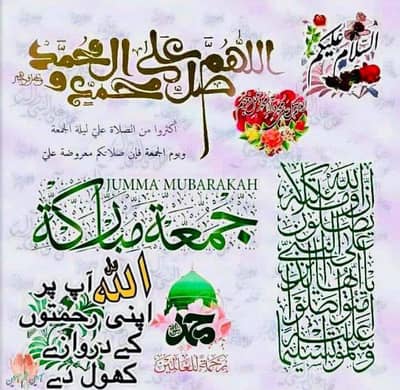 السلام عليكم
اللهم صل على محمد وال محمد
أكثروا من الصلاة عليّ ليلة الجمعة
ويوم الجمعة فإن صلاتكم معروضة عليّ
JUMMA MUBARAKAH
جمعة مباركة
إن الله وملائكته
يصلون
على النبي
يا أيها الذين
آمنوا صلوا
عليه
وسلموا تسليما
الله آپ پر
اپنی رحمتوں
کے دروازے
کھول دے
محمد
رحمة للعالمين